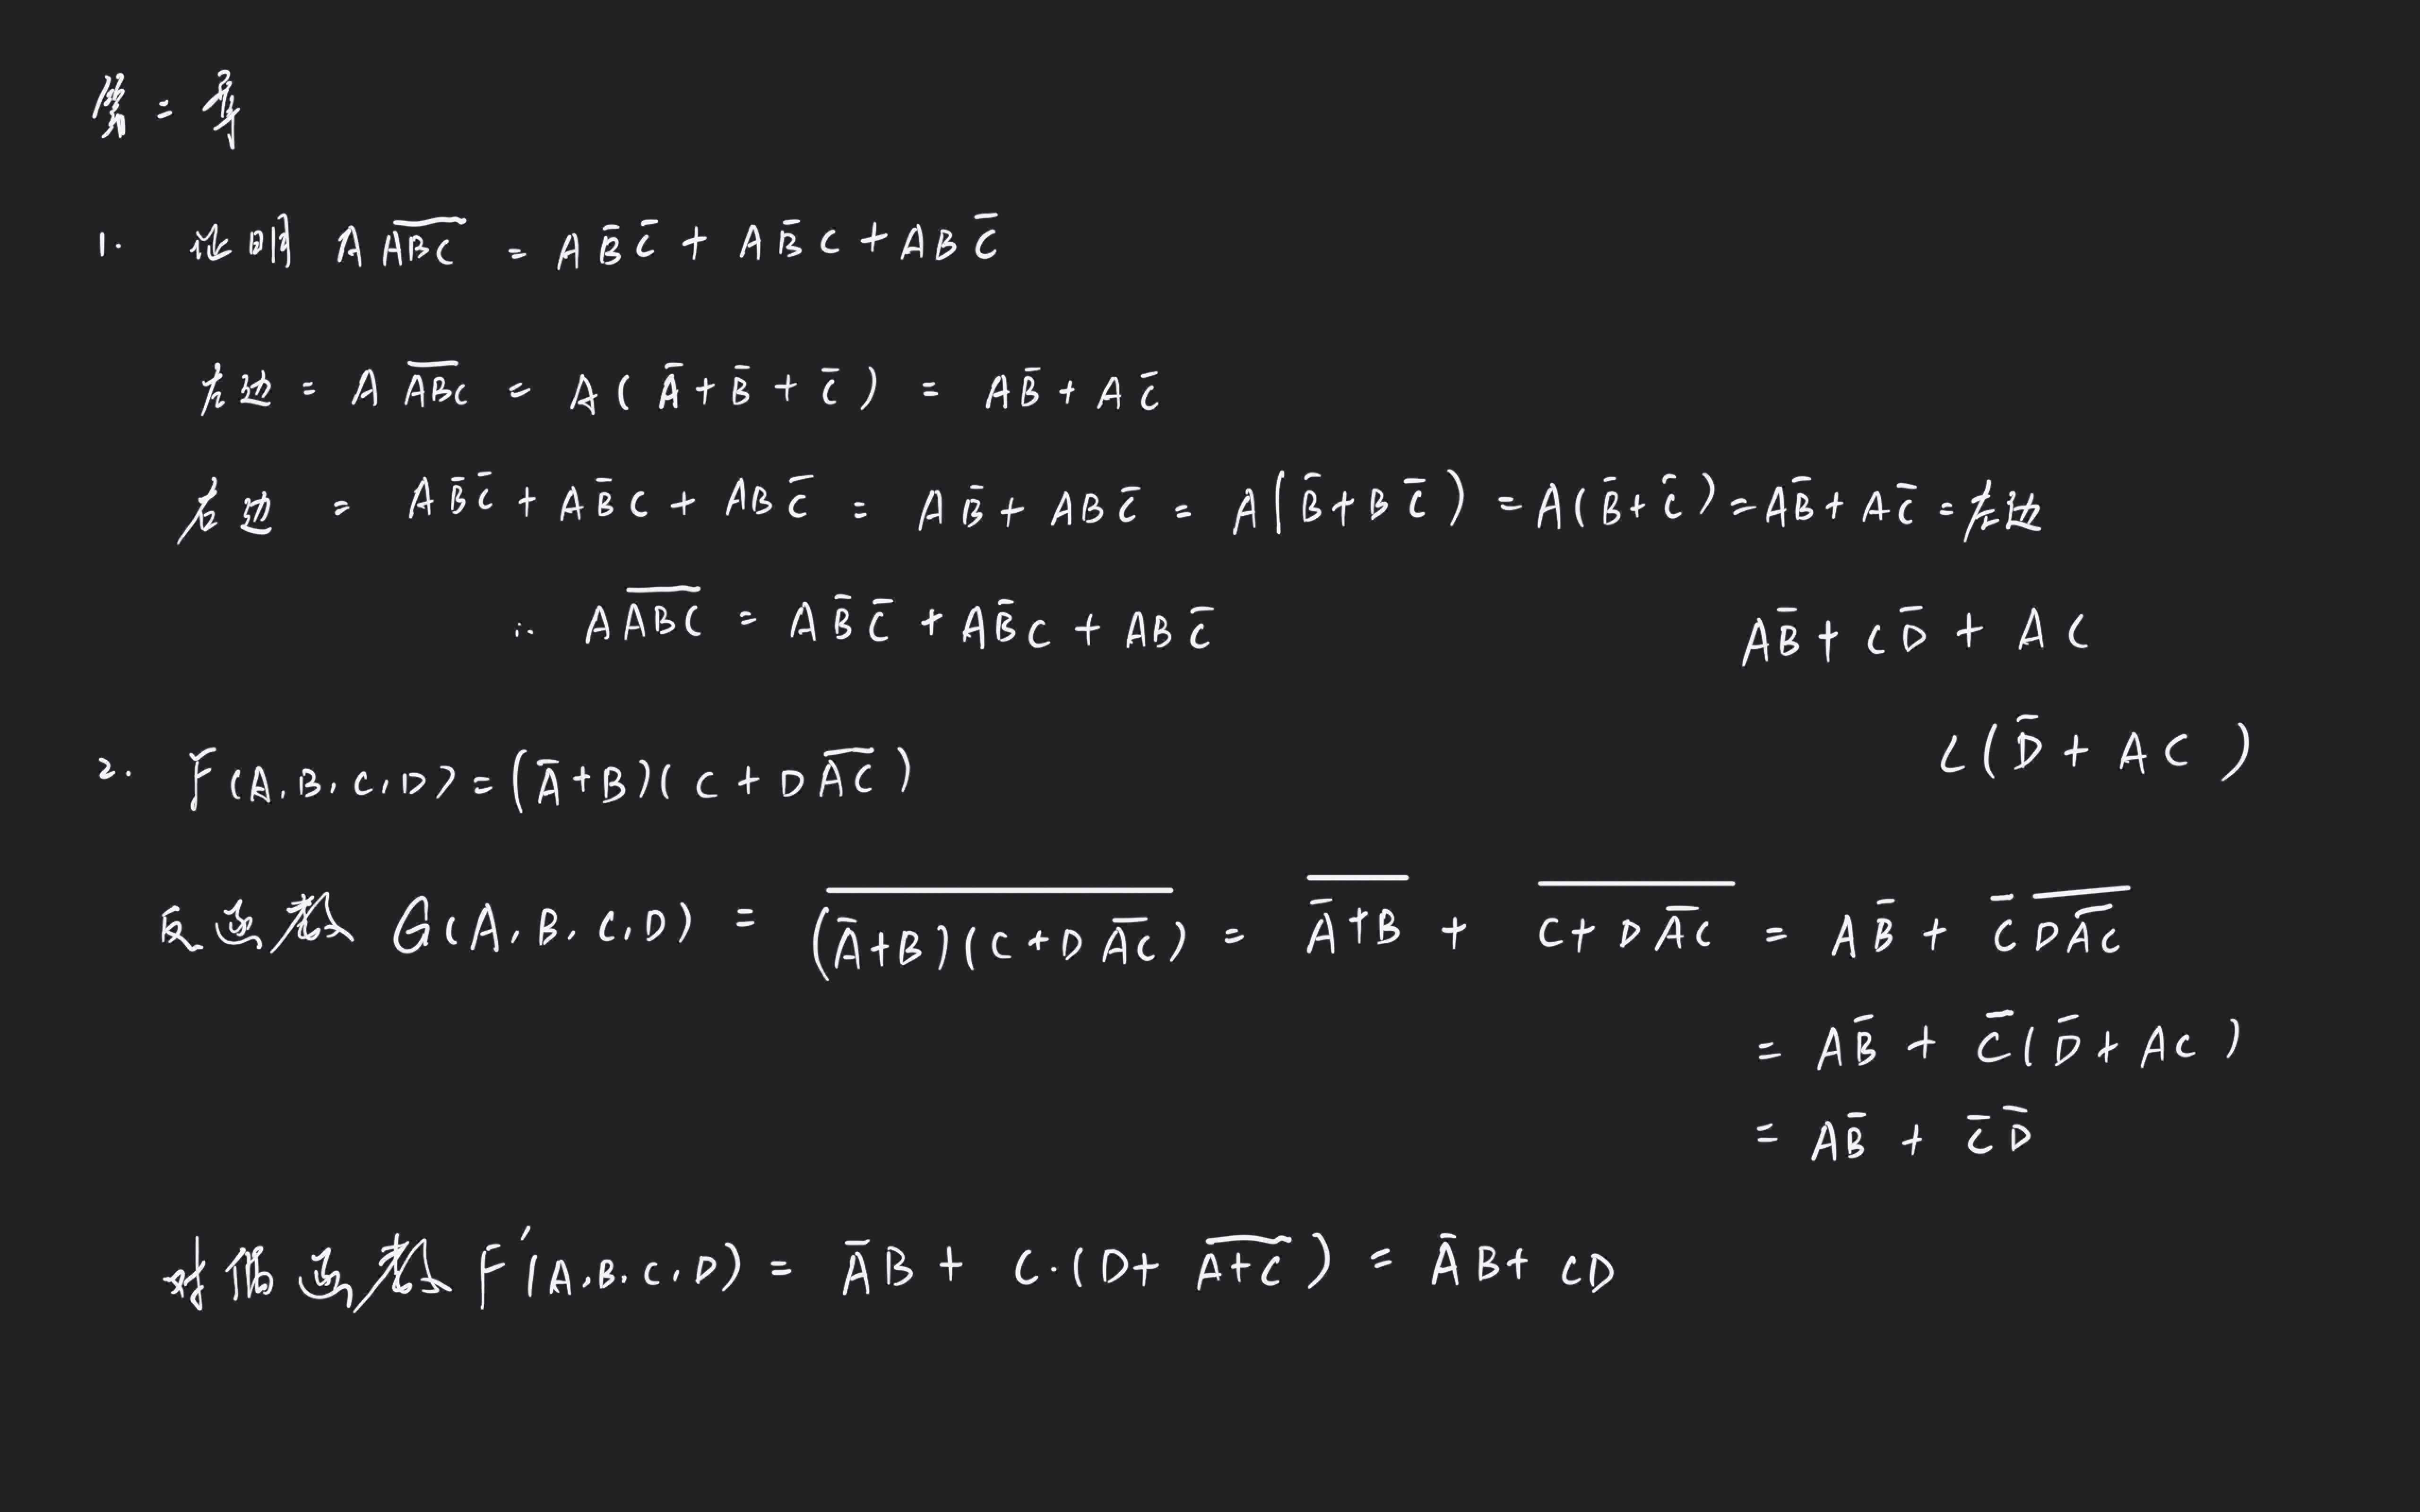 第二章
1. 证明 A\overline{ABC} = AB̄C̄ + AB̄C + ABC̄
左边 = A\overline{ABC} = A(Ā+B̄+C̄) = AB̄+AC̄
右边 = AB̄C̄+AB̄C+ABC̄ = AB̄+ABC̄ = A(B̄+BC̄) = A(B̄+C̄) = AB̄+AC̄ = 左边
∴ A\overline{ABC} = AB̄C̄ + AB̄C + ABC̄
AB̄+CD̄+AC
C(D̄+AC)
2. F(A,B,C,D) = (Ā+B)(C+D\overline{AC})
反函数 G(A,B,C,D) = \overline{(Ā+B)(C+D\overline{AC})} = \overline{Ā+B} + \overline{C+D\overline{AC}} = AB̄ + C̄\overline{D\overline{AC}}
= AB̄ + C̄(D̄+AC)
= AB̄ + C̄D̄
对偶函数 F'(A,B,C,D) = ĀB + C·(D+\overline{A+C}) = ĀB+CD